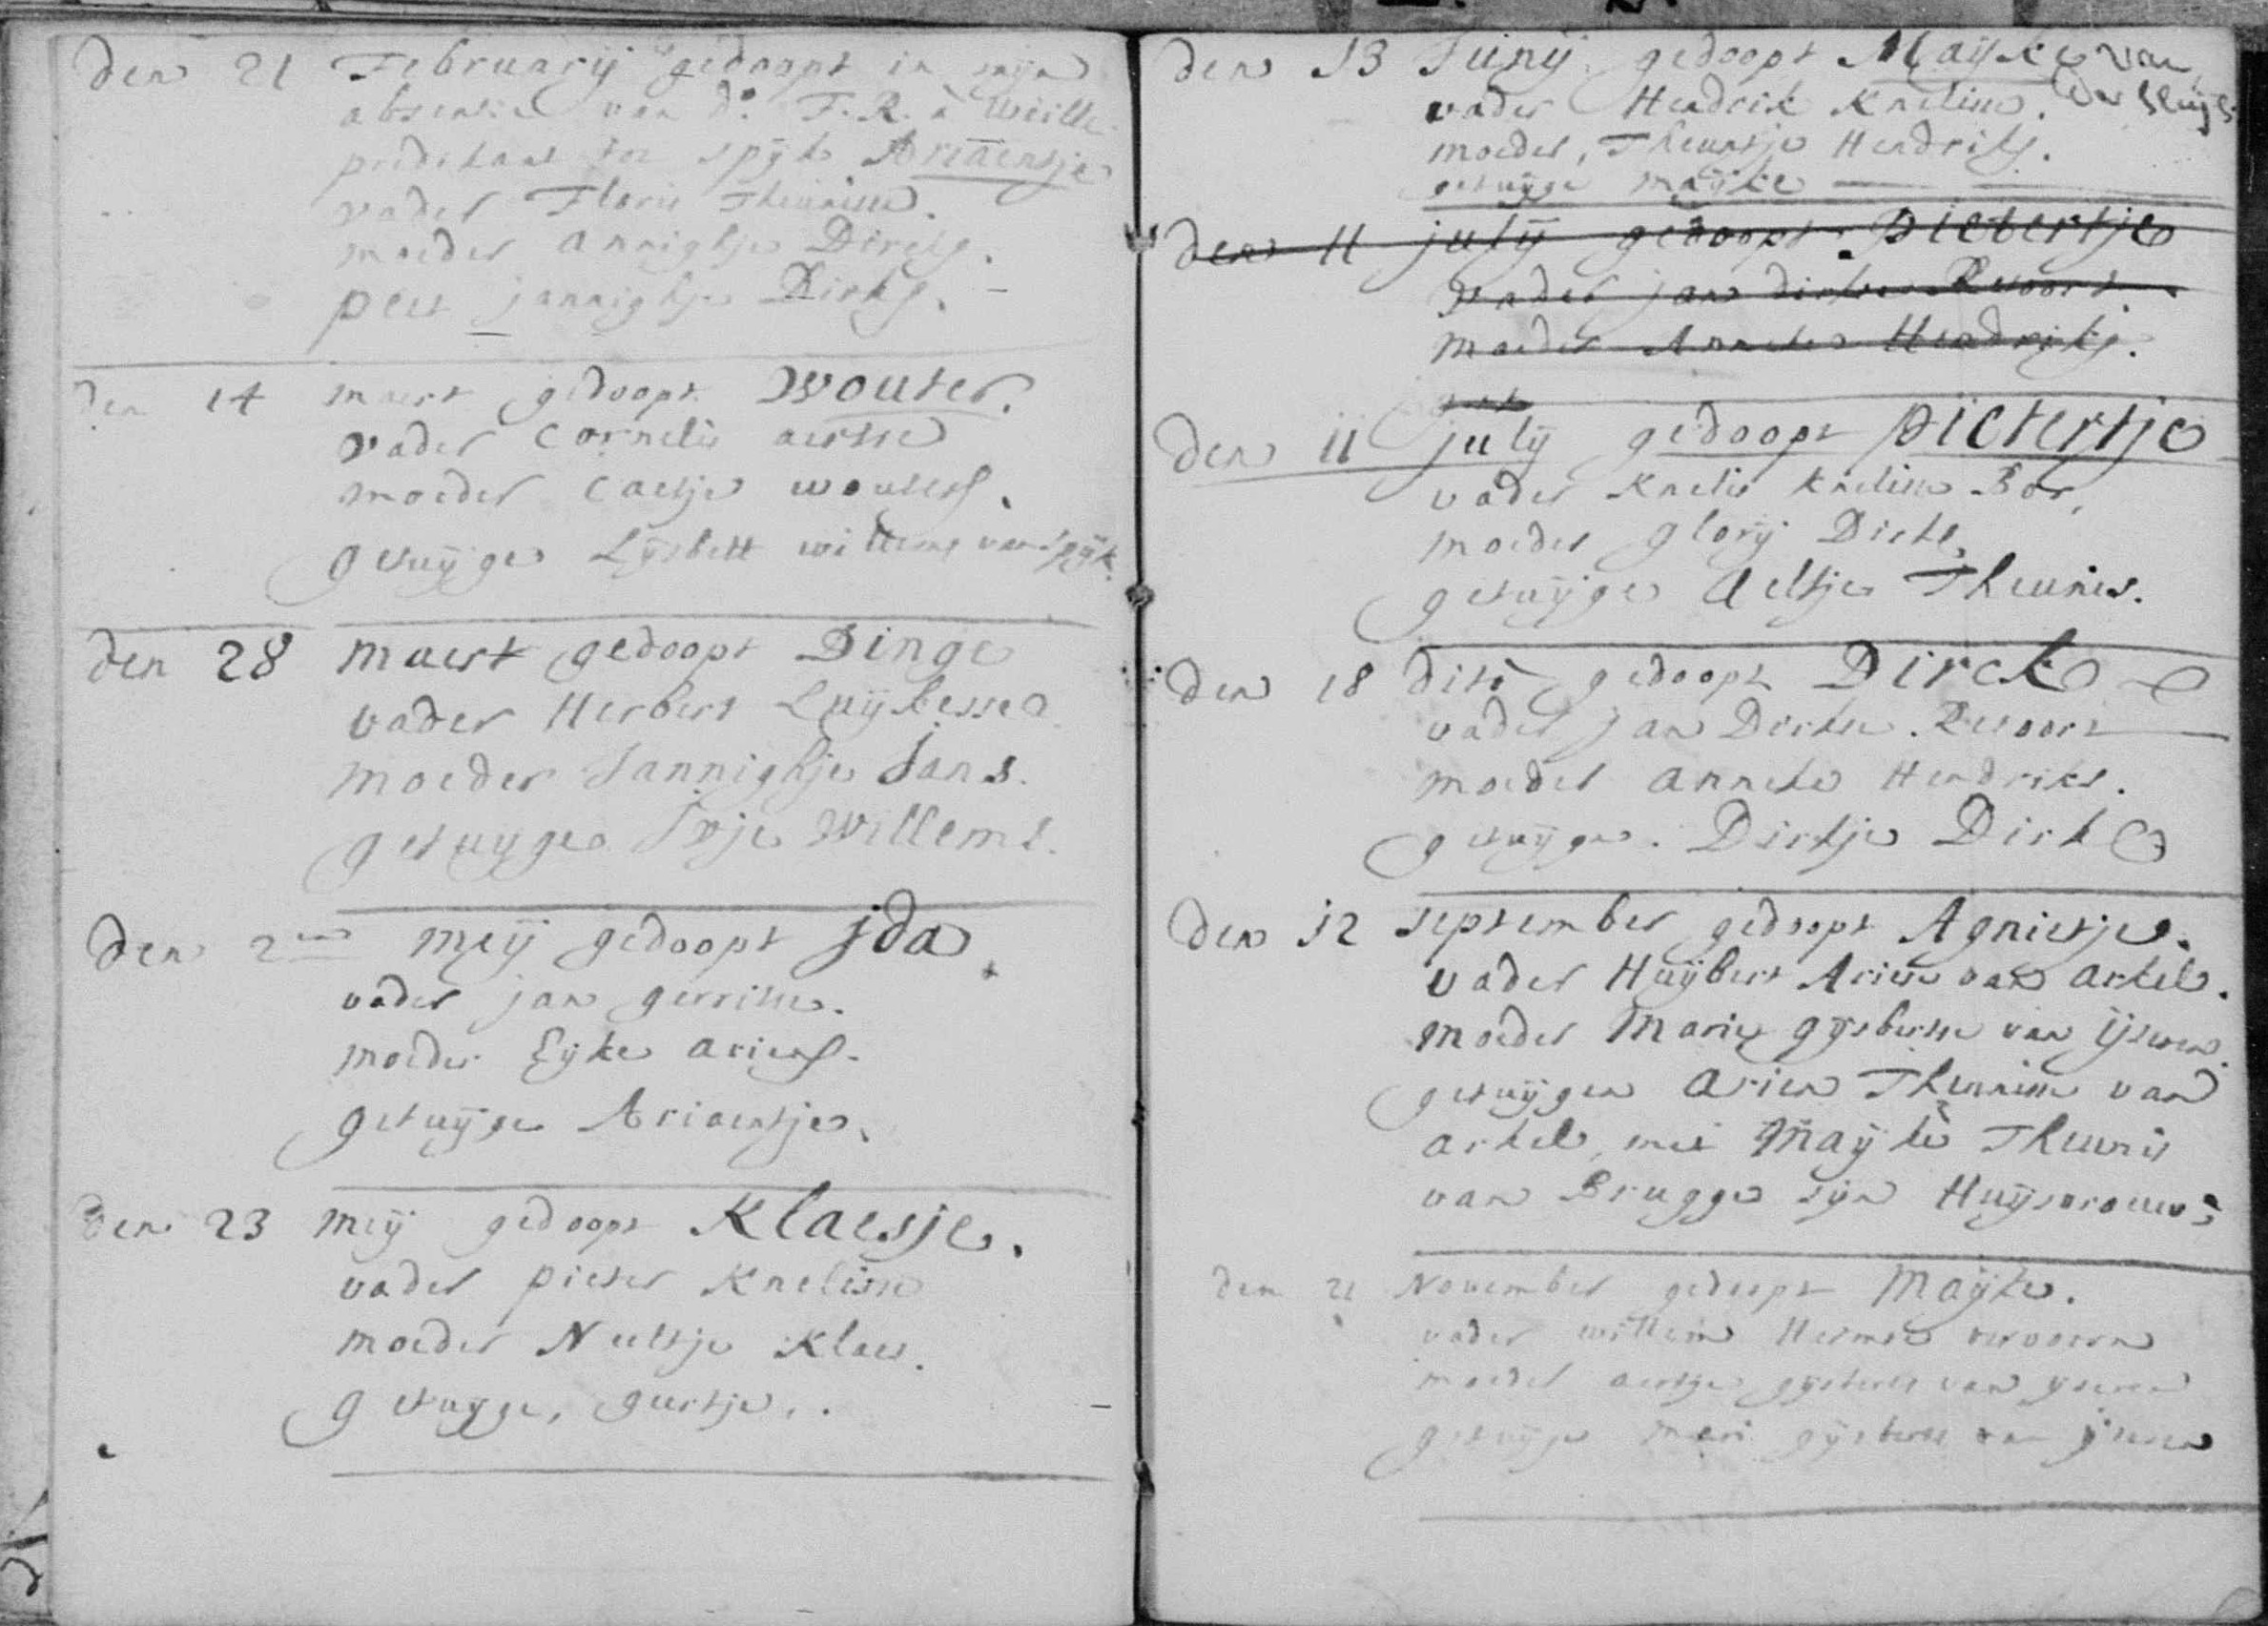 den 21 Februarij gedoopt in mijn
absentie van do. F. R. à
predikant tot spijk Ariaentje
vader Floris Theunisse.
moeder Annighje Dircks.
peet jannighje Dirks.
den 14 maert gedoopt Wouter.
vader Cornelis aertse
moeder Caetje wouters.
getuijge Lijsbett willems van Spijk.
den 28 maert gedoopt Dinge
vader Herbert Luijkesse
moeder Jannighje Jans.
getuijge Willems.
den 2en meij gedoopt jda.
vader jan gerritse.
moeder Eijke ariens.
getuijge Ariaentje.
den 23 meij gedoopt Klaesje.
vader pieter Knelisse
moeder Neeltje Klaes.
getuijge, geertje.
den 13 Junij gedoopt Maijke van
der Sluijs.
vader Hendrik Knelisse.
moeder, Theuntje Hendriks.
getuijge maijke
den 11 julij gedoopt Pietertje
vader jan dirkse Revoort.
moeder Anneke Hendriks.
den 11 julij gedoopt pietertje
vader Knelis Knelisse Bor,
moeder glorij Dirks,
getuijge Aeltje Theunis.
den 18 dito gedoopt Dirck
vader jan Dirkse Revoort
moeder Anneke Hendriks.
getuijge. Dirkje Dirks
den 12 september gedoopt Agnietje.
vader Huijbert Ariese van Arkel.
moeder Marie gijsbertse van ijseren.
getuijgen Arien Theunisse van
arkel, met Maijke Theunis
van Brugge sijn Huijsvrouw
den 21 November gedoopt Maijke.
vader willem Hermse vervoorn
moeder aertje gijsberts van ijseren
getuijge mari gijsberts van ijseren